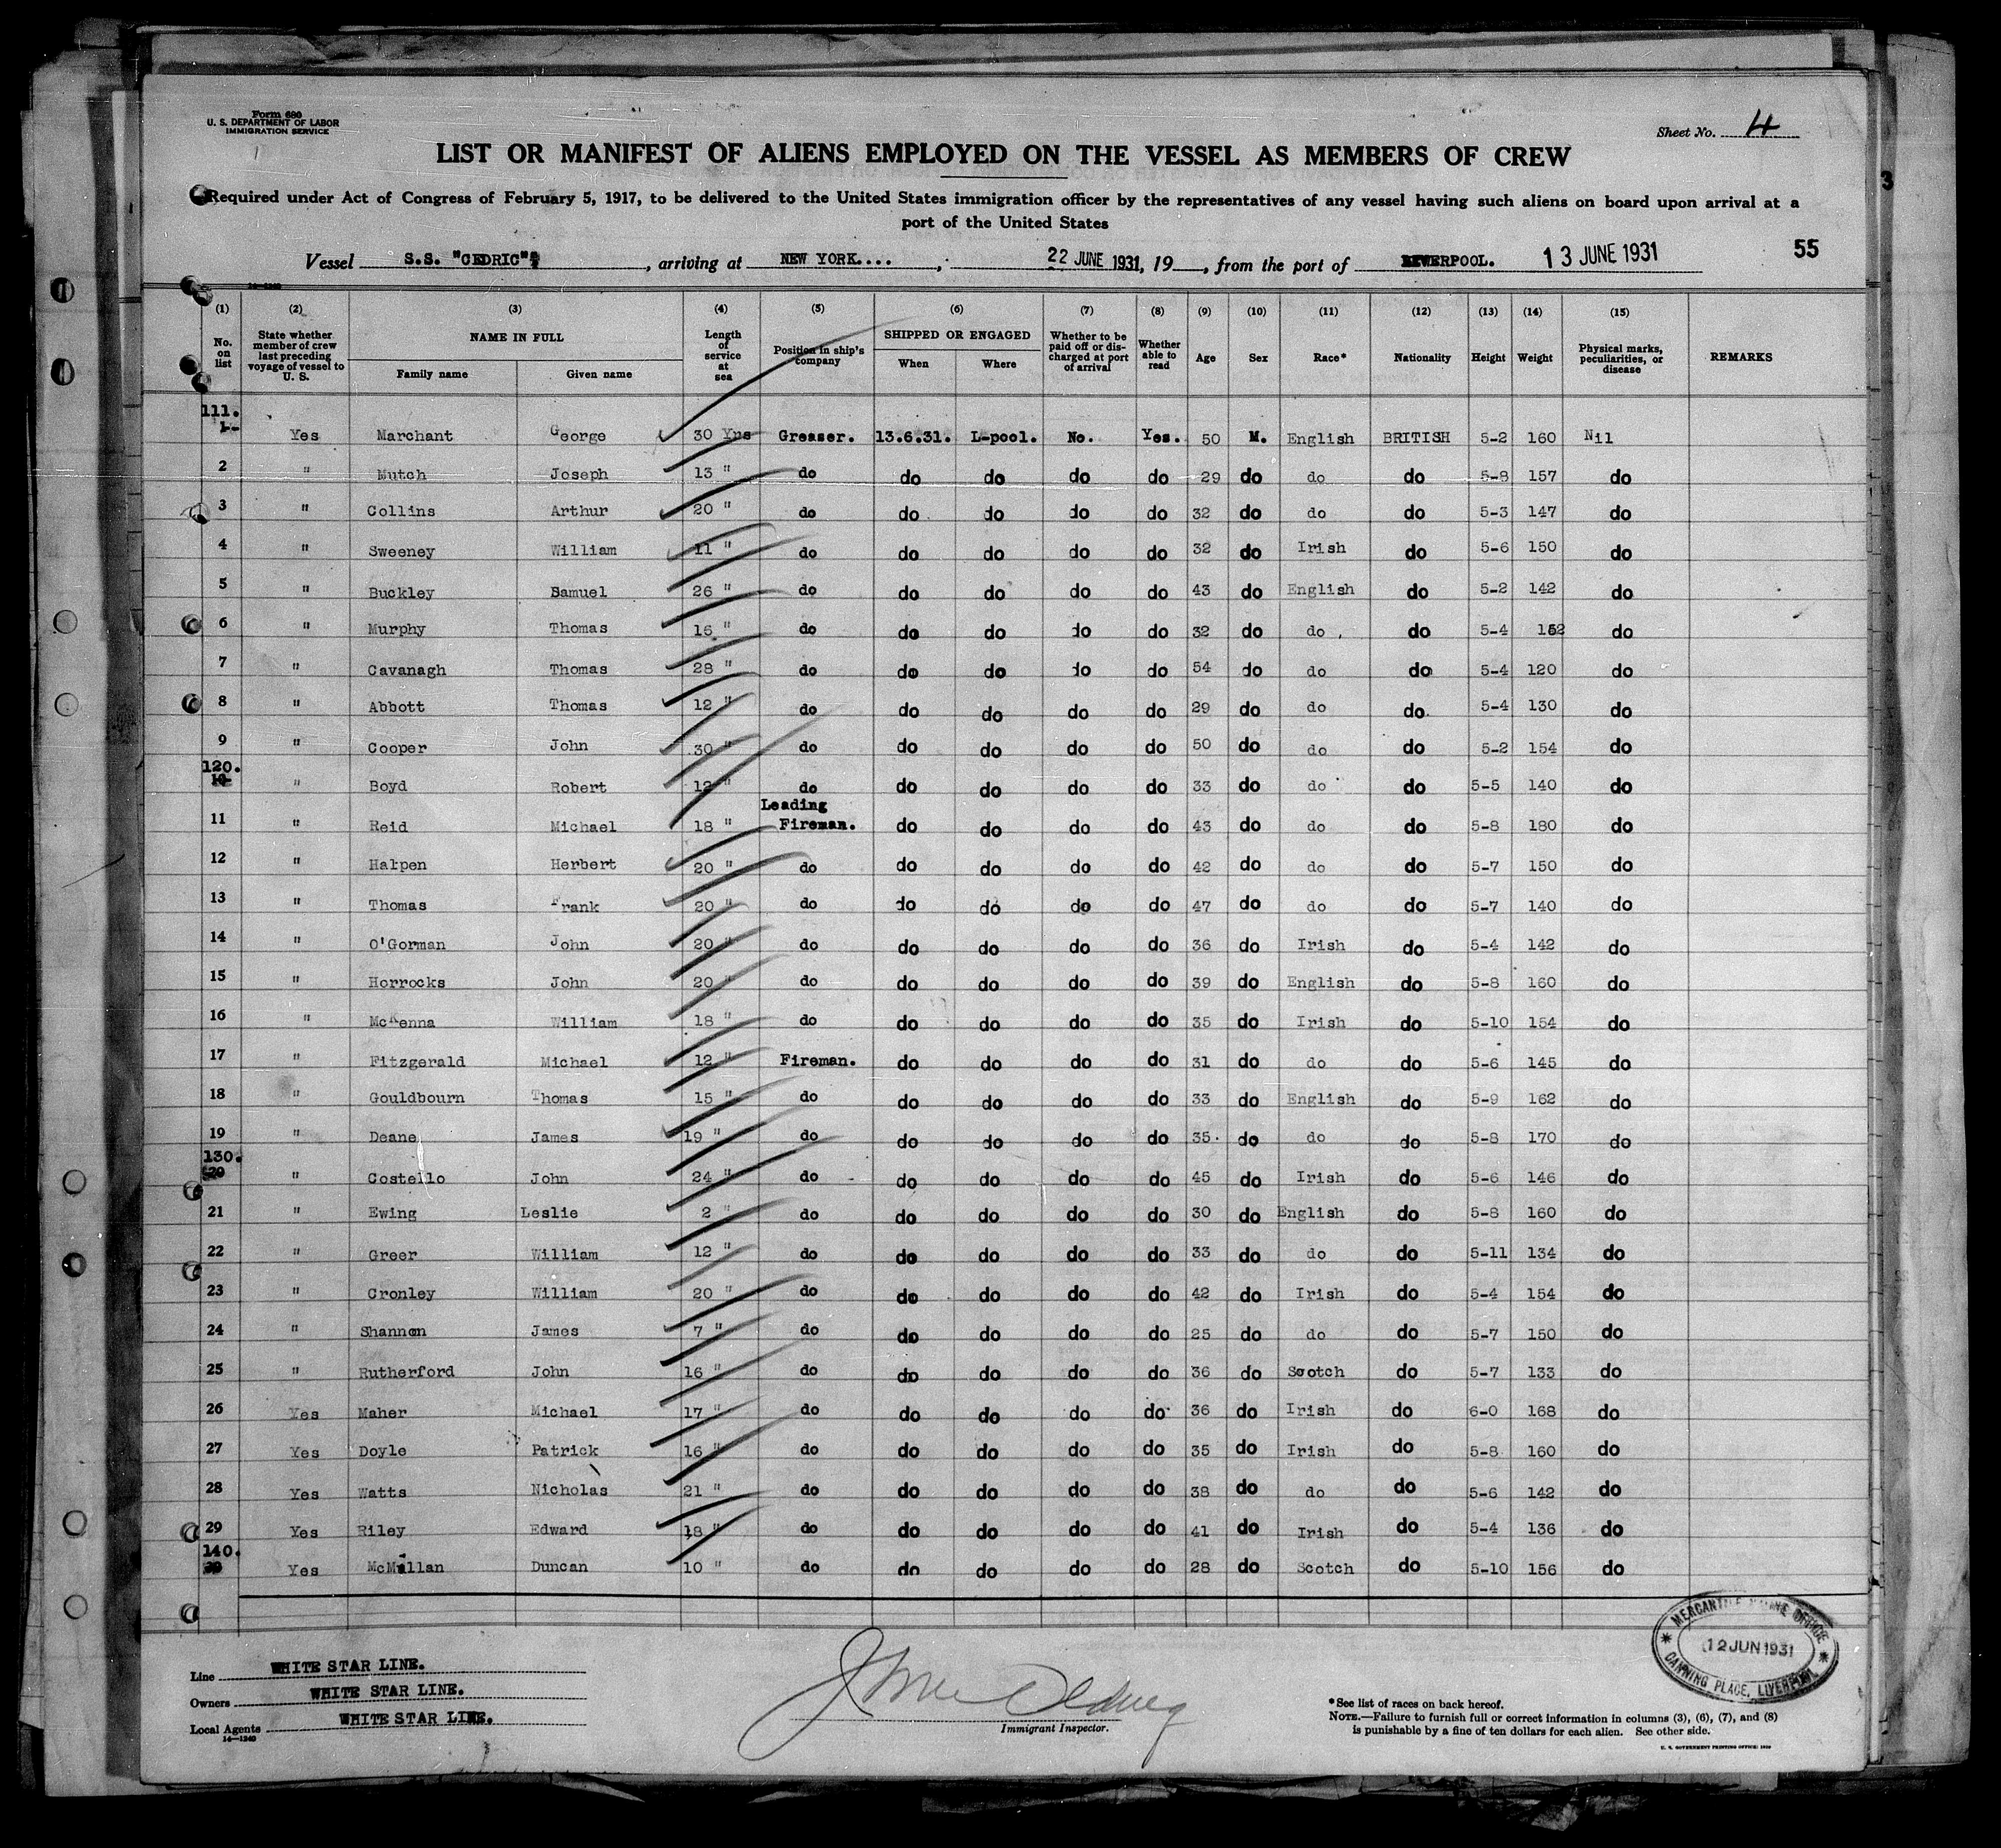 Form 680
U. S. DEPARTMENT OF LABOR
IMMIGRATION SERVICE
Sheet No. 4
LIST OR MANIFEST OF ALIENS EMPLOYED ON THE VESSEL AS MEMBERS OF CREW
Required under Act of Congress of February 5, 1917, to be delivered to the United States immigration officer by the representatives of any vessel having such aliens on board upon arrival at a
port of the United States
Vessel S.S. "CEDRIC", arriving at NEW YORK...., 22 JUNE 1931, 19, from the port of LIVERPOOL. 13 JUNE 1931 55
14—1240
(1) (2) (3) (4) (5) (6) (7) (8) (9) (10) (11) (12) (13) (14) (15)
No. on list State whether member of crew last preceding voyage of vessel to U. S. NAME IN FULL Family name Given name Length of service at sea Position in ship's company SHIPPED OR ENGAGED When Where Whether to be paid off or discharged at port of arrival Whether able to read Age Sex Race* Nationality Height Weight Physical marks, peculiarities, or disease REMARKS
111. 1 Yes Marchant George 30 Yrs Greaser. 13.6.31. L-pool. No. Yes. 50 M. English BRITISH 5-2 160 Nil
2 " Mutch Joseph 13 " do do do do do 29 do do do 5-8 157 do
3 " Collins Arthur 20 " do do do do do 32 do do do 5-3 147 do
4 " Sweeney William 11 " do do do do do 32 do Irish do 5-6 150 do
5 " Buckley Samuel 26 " do do do do do 43 do English do 5-2 142 do
6 " Murphy Thomas 16 " do do do do do 32 do do do 5-4 152 do
7 " Cavanagh Thomas 28 " do do do do do 54 do do do 5-4 120 do
8 " Abbott Thomas 12 " do do do do do 29 do do do 5-4 130 do
9 " Cooper John 30 " do do do do do 50 do do do 5-2 154 do
120. 10 " Boyd Robert 12 " do do do do do 33 do do do 5-5 140 do
11 " Reid Michael 18 " Leading Fireman. do do do do 43 do do do 5-8 180 do
12 " Halpen Herbert 20 " do do do do do 42 do do do 5-7 150 do
13 " Thomas Frank 20 " do do do do do 47 do do do 5-7 140 do
14 " O'Gorman John 20 " do do do do do 36 do Irish do 5-4 142 do
15 " Horrocks John 20 " do do do do do 39 do English do 5-8 160 do
16 " McKenna William 18 " do do do do do 35 do Irish do 5-10 154 do
17 " Fitzgerald Michael 12 " Fireman. do do do do 31 do do do 5-6 145 do
18 " Gouldbourn Thomas 15 " do do do do do 33 do English do 5-9 162 do
19 " Deane James 19 " do do do do do 35. do do do 5-8 170 do
130. 20 " Costello John 24 " do do do do do 45 do Irish do 5-6 146 do
21 " Ewing Leslie 2 " do do do do do 30 do English do 5-8 160 do
22 " Greer William 12 " do do do do do 33 do do do 5-11 134 do
23 " Cronley William 20 " do do do do do 42 do Irish do 5-4 154 do
24 " Shannon James 7 " do do do do do 25 do do do 5-7 150 do
25 " Rutherford John 16 " do do do do do 36 do Scotch do 5-7 133 do
26 Yes Maher Michael 17 " do do do do do 36 do Irish do 6-0 168 do
27 Yes Doyle Patrick 16 " do do do do do 35 do Irish do 5-8 160 do
28 Yes Watts Nicholas 21 " do do do do do 38 do do do 5-6 142 do
29 Yes Riley Edward 18 " do do do do do 41 do Irish do 5-4 136 do
140. 30 Yes McMillan Duncan 10 " do do do do do 28 do Scotch do 5-10 156 do
MERCANTILE MARINE OFFICE
12 JUN 1931
CANNING PLACE, LIVERPOOL
Line WHITE STAR LINE.
Owners WHITE STAR LINE.
Local Agents WHITE STAR LINE.
14—1240
Immigrant Inspector.
*See list of races on back hereof.
NOTE.—Failure to furnish full or correct information in columns (3), (6), (7), and (8)
is punishable by a fine of ten dollars for each alien. See other side.
U. S. GOVERNMENT PRINTING OFFICE: 1930